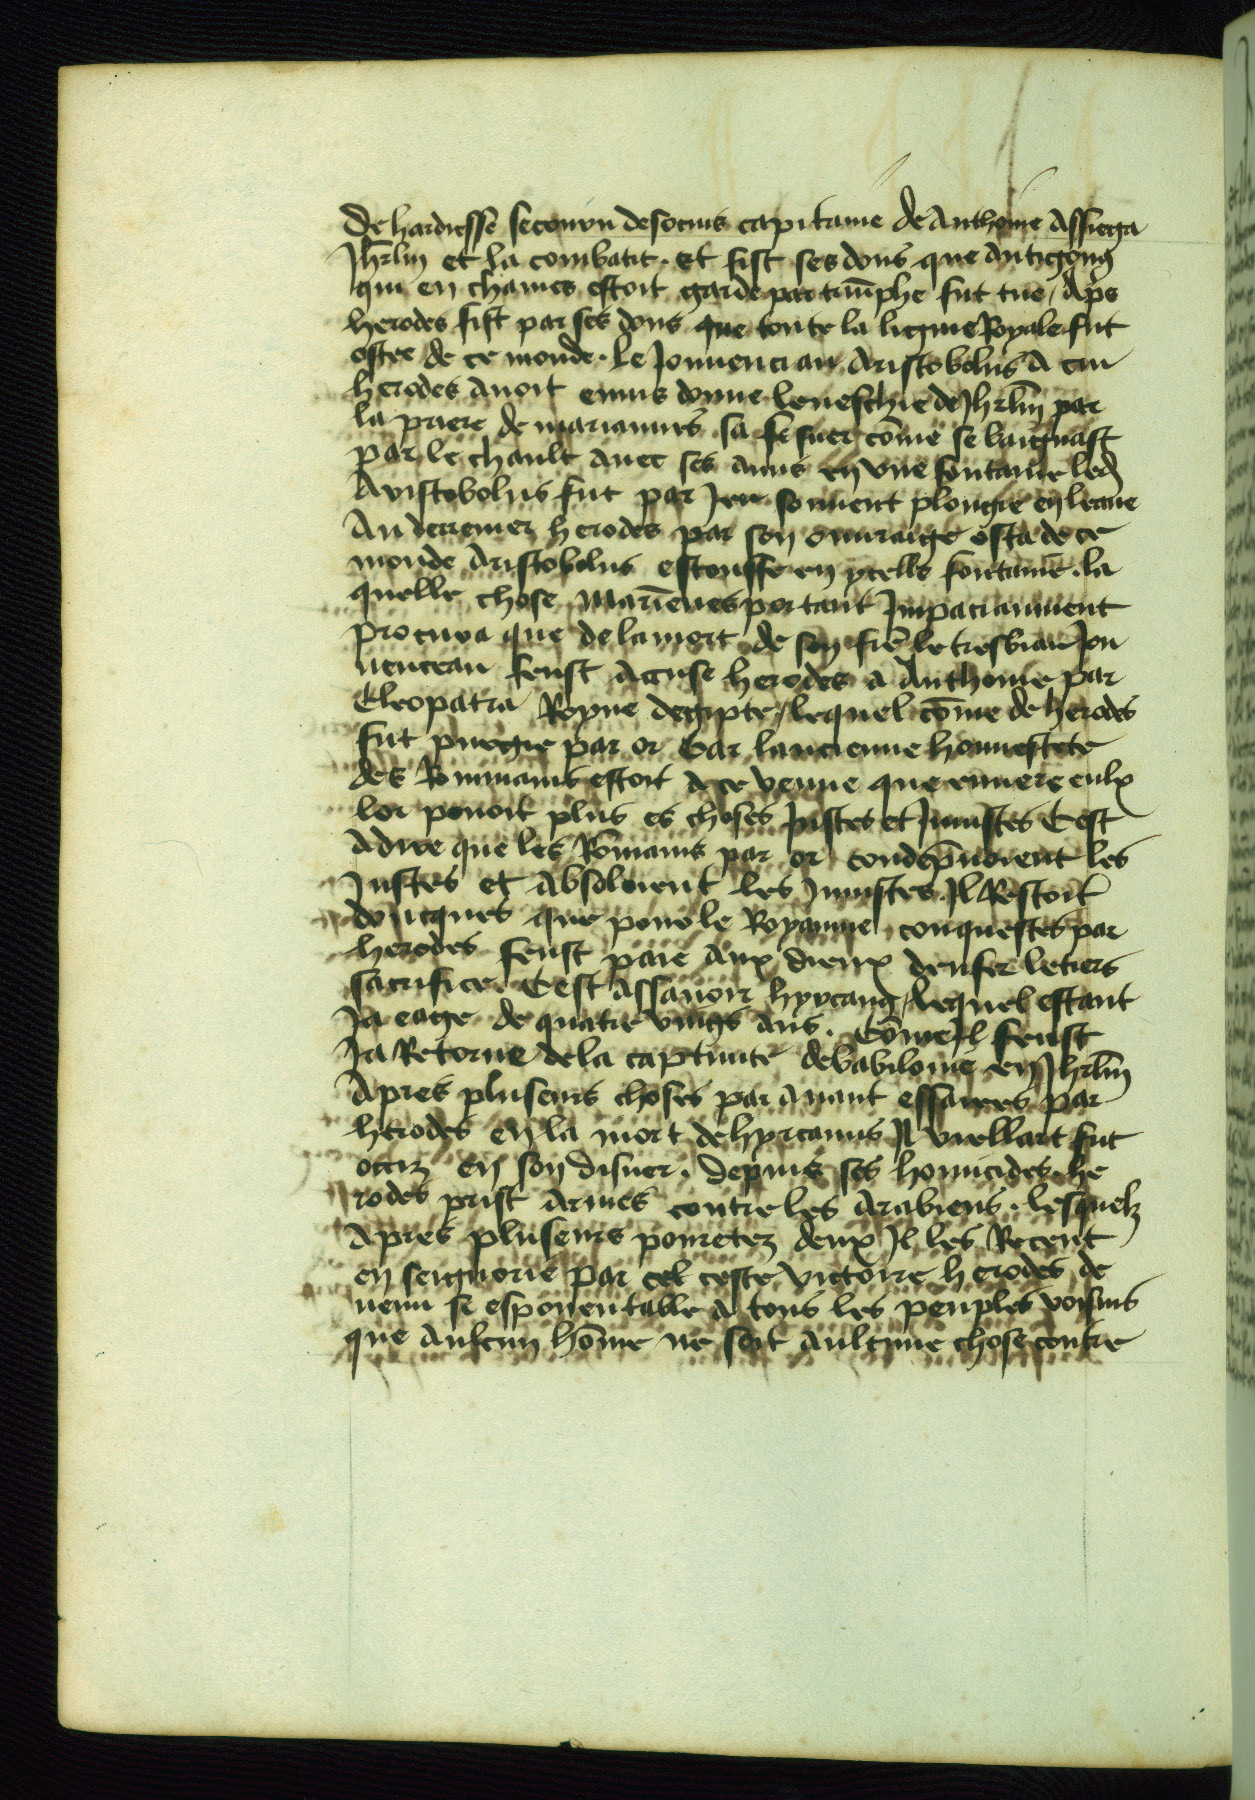 de hardiesse secouru de socius capitaine de Anthoine Assiega
Jhrlm et la combatit. et fist ses dons que Antigong
qui en chaines estoit garde par triũphe fut tue / Aps
herodes fist par ses dons que toute la lignie Royale fut
ostee de ce monde. le Jouuenciau Aristobolus A cui
herodes auoit enuis donne leueschie de Jhrlm par
la priere de mariannes sa seuer cõme se baignast
par le chault auec ses amis en vne fontaine led
Aristobolus fut par Jeu souuent plongie en leaue
Au derrenier herodes par son ouuraige osta de ce
monde Aristobolus estouffe en ycelle fontaine. la
quelle chose Mariẽnes portant Jmpaciamment
procura que de la mort de son frẽ le tresbiau Jou
uenceau feust Accuse herodes a Anthoine par
Cleopatra Royne degipte / lequel cõme de herodes
fut puergie par or Car lancienne honnestete
des Rommains estoit A ce venue que enuers eulx
lor pouoit plus es choses Justes et Jniustes Cest
Adire que les Rõmains par or condẽpnoient les
Justes et Absoloient les Jniustes. Jl Restoit
doncques que pour le Royaume conquestes par
herodes feust paie Aux dieux denfer le tiers
sacrifice. Cest Assauoir hyrcang / lequel estant
Ja eage de quatre vings ans. Cõme Jl feust
Ja Retorne de la captiuite de babiloine en Jhrlm
Apres pluseurs choses par auant essaiees par
herodes en la mort de hyrcanus Jl viellart fut
occiz en son disner. Depuis ses homicides he
rodes prist Armes contre les Arabiens. lesquelz
Apres pluseurs pouretez deux Jl les Receut
en seignorie par cel ceste victoire herodes de
uenu se espouentable A tous les peuples voisins
que Aulcun hõme ne soit Aulcune chose contre